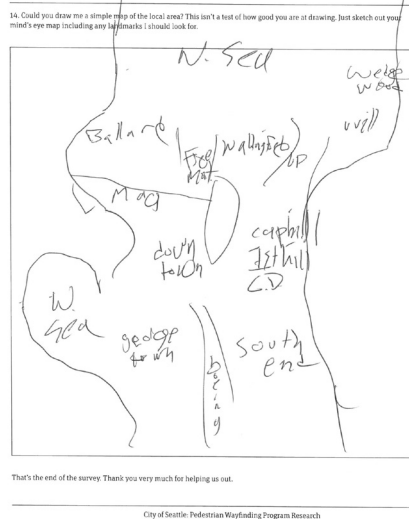 14. Could you draw me a simple map of the local area? This isn't a test of how good you are at drawing. Just sketch out your
mind's eye map including any landmarks I should look for.
N. Sea
Wedge
wood
Ballard
Free
Mnt.
Wallingford
UP
Uvill
Mag
down
town
caphill
1st hill
C.D
W.
Sea
george
town
boeing
south
end
That's the end of the survey. Thank you very much for helping us out.
City of Seattle: Pedestrian Wayfinding Program Research